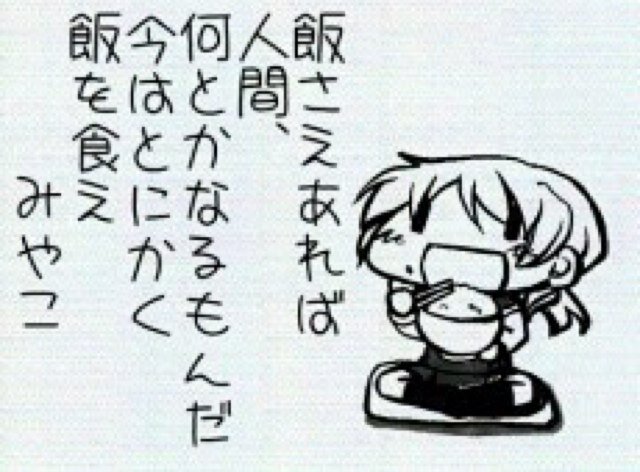 飯さえあれば
人間、
何とかなるもんだ
今はとにかく
飯を食え
みやこ